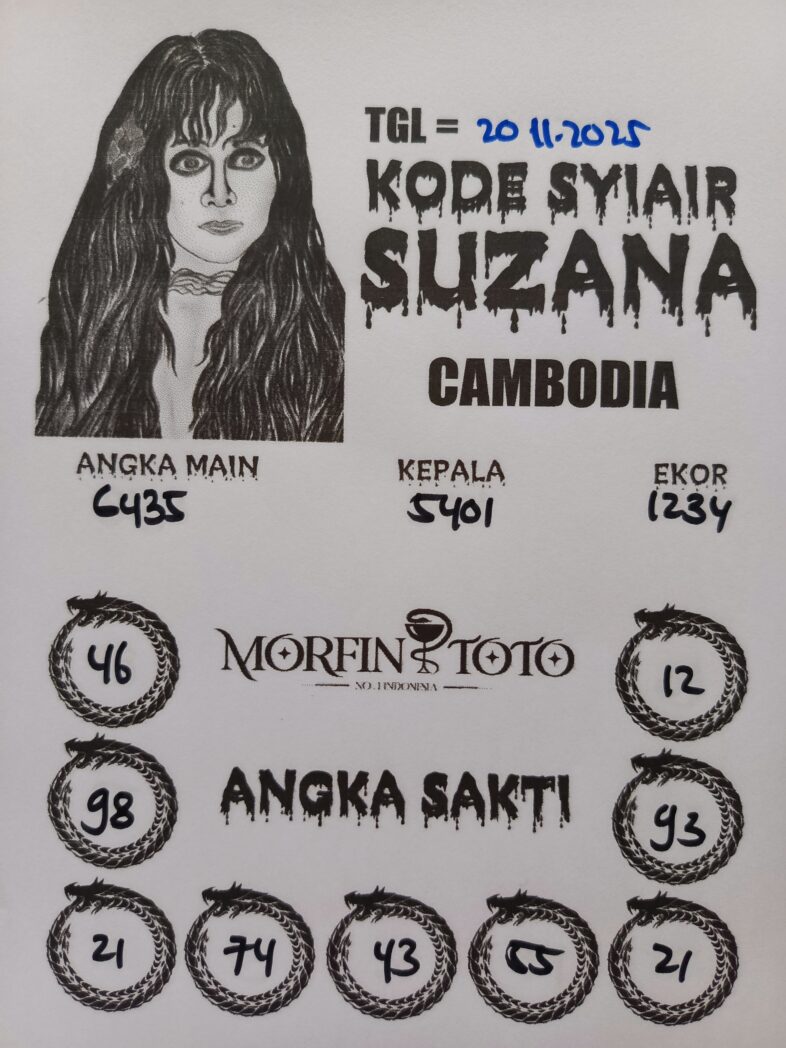 TGL = 20 11.2025
KODE SYIAIR
SUZANA
CAMBODIA
ANGKA MAIN KEPALA EKOR
6435 5401 1234
46 MORFIN TOTO 12
NO. 1 INDONESIA
98 ANGKA SAKTI 93
21 74 43 55 21